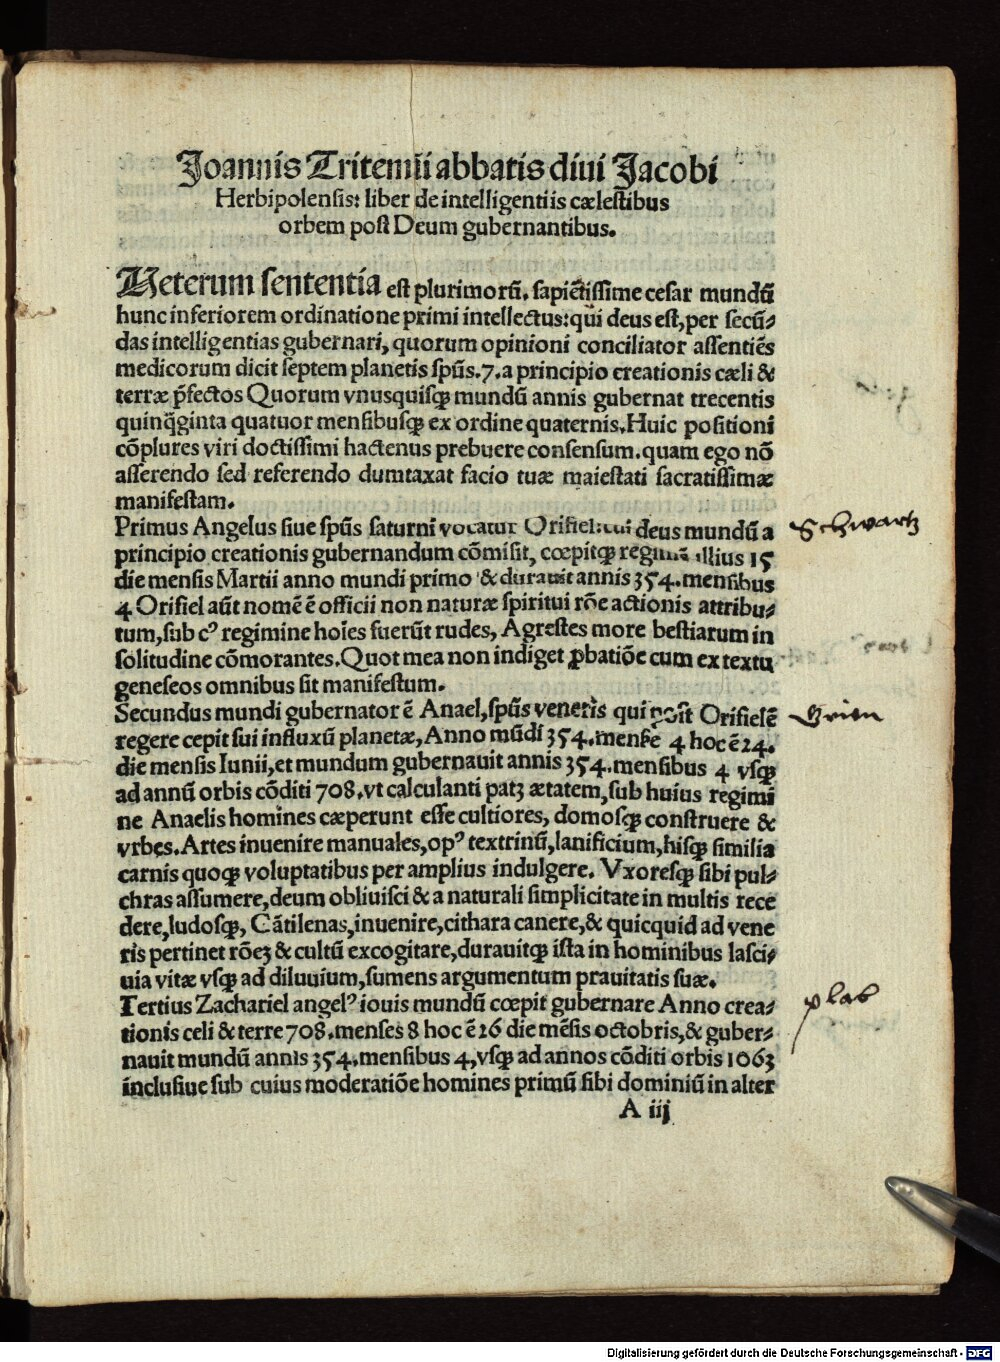 Joannis Tritemii abbatis diui Jacobi
Herbipolensis: liber de intelligentiis cælestibus
orbem post Deum gubernantibus.
Veterum sententia est plurimorũ. sapiẽtissime cesar mundũ
hunc inferiorem ordinatione primi intellectus: qui deus est, per secũ-
das intelligentias gubernari, quorum opinioni conciliator assentiẽs
medicorum dicit septem planetis spũs.7.a principio creationis cæli &
terræ p̃fectos Quorum vnusquisq; mundũ annis gubernat trecentis
quinq̃ginta quatuor mensibusq; ex ordine quaternis. Huic positioni
cõplures viri doctissimi hactenus prebuere consensum. quam ego nõ
asserendo sed referendo dumtaxat facio tuæ maiestati sacratissimæ
manifestam.
Primus Angelus siue spũs saturni vocatur Orifiel: cui deus mundũ a
principio creationis gubernandum cõmisit, cœpitq; regimẽ illius 15
die mensis Martii anno mundi primo & durauit annis 354. mensibus
4 Orifiel aũt nomẽ ẽ officii non naturæ spiritui rõe actionis attribu-
tum, sub cꝰ regimine hoĩes fuerũt rudes, Agrestes more bestiarum in
solitudine cõmorantes. Quot mea non indiget ꝓbatiõe cum ex textu
geneseos omnibus sit manifestum.
Secundus mundi gubernator ẽ Anael, spũs veneris qui post Orifielẽ
regere cepit sui influxũ planetæ, Anno mũdi 354. mense 4 hoc ẽ 24.
die mensis Iunii, et mundum gubernauit annis 354. mensibus 4 vsq;
ad annũ orbis cõditi 708. vt calculanti patꝫ ætatem, sub huius regimi
ne Anaelis homines cæperunt esse cultiores, domosq; construere &
vrbes. Artes inuenire manuales, opꝰ textrinũ, lanificium, hisq; similia
carnis quoq; voluptatibus per amplius indulgere. Vxoresq; sibi pul-
chras assumere, deum obliuisci & a naturali simplicitate in multis rece
dere, ludosq;, Cãtilenas, inuenire, cithara canere, & quicquid ad vene
ris pertinet rõeꝫ & cultũ excogitare, durauitq; ista in hominibus lasci-
uia vitæ vsq; ad diluuium, sumens argumentum prauitatis suæ.
Tertius Zachariel angelꝰ iouis mundũ cœpit gubernare Anno crea-
tionis celi & terre 708. menses 8 hoc ẽ 26 die mẽsis octobris, & guber-
nauit mundũ annis 354. mensibus 4, vsq; ad annos cõditi orbis 1063
inclusiue sub cuius moderatiõe homines primũ sibi dominiũ in alter
A iij
Schwartz
Grien
plab
Digitalisierung gefördert durch die Deutsche Forschungsgemeinschaft - DFG